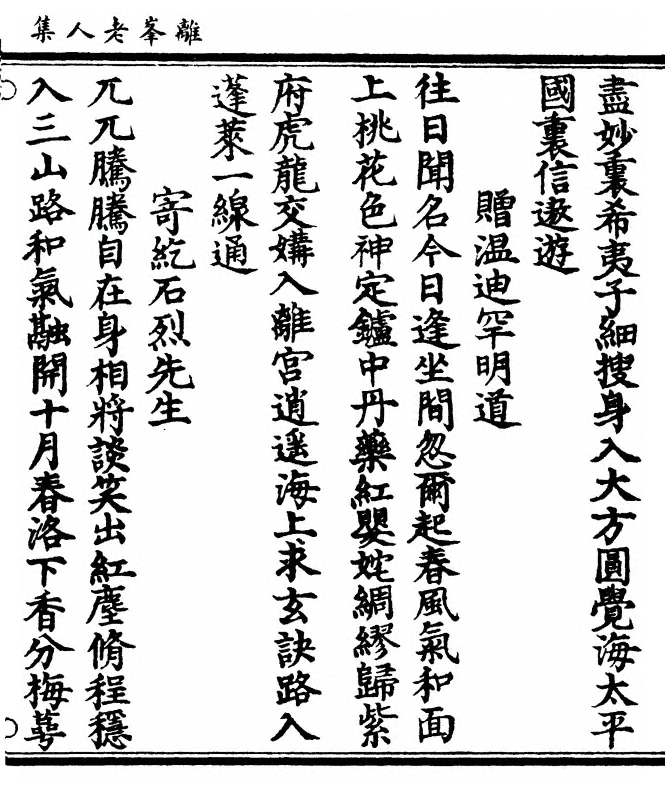 離峯老人集
盡妙裏希夷子細搜身入大方圓覺海太平
國裏信遨遊
贈温迪罕明道
往日聞名今日逢坐間忽爾起春風氣和面
上桃花色神定鑪中丹藥紅嬰姹綢繆歸紫
府虎龍交媾入離宫逍遥海上求玄訣路入
蓬萊一線通
寄紇石烈先生
兀兀騰騰自在身相將談笑出紅塵脩程穩
入三山路和氣融開十月春洛下香分梅萼